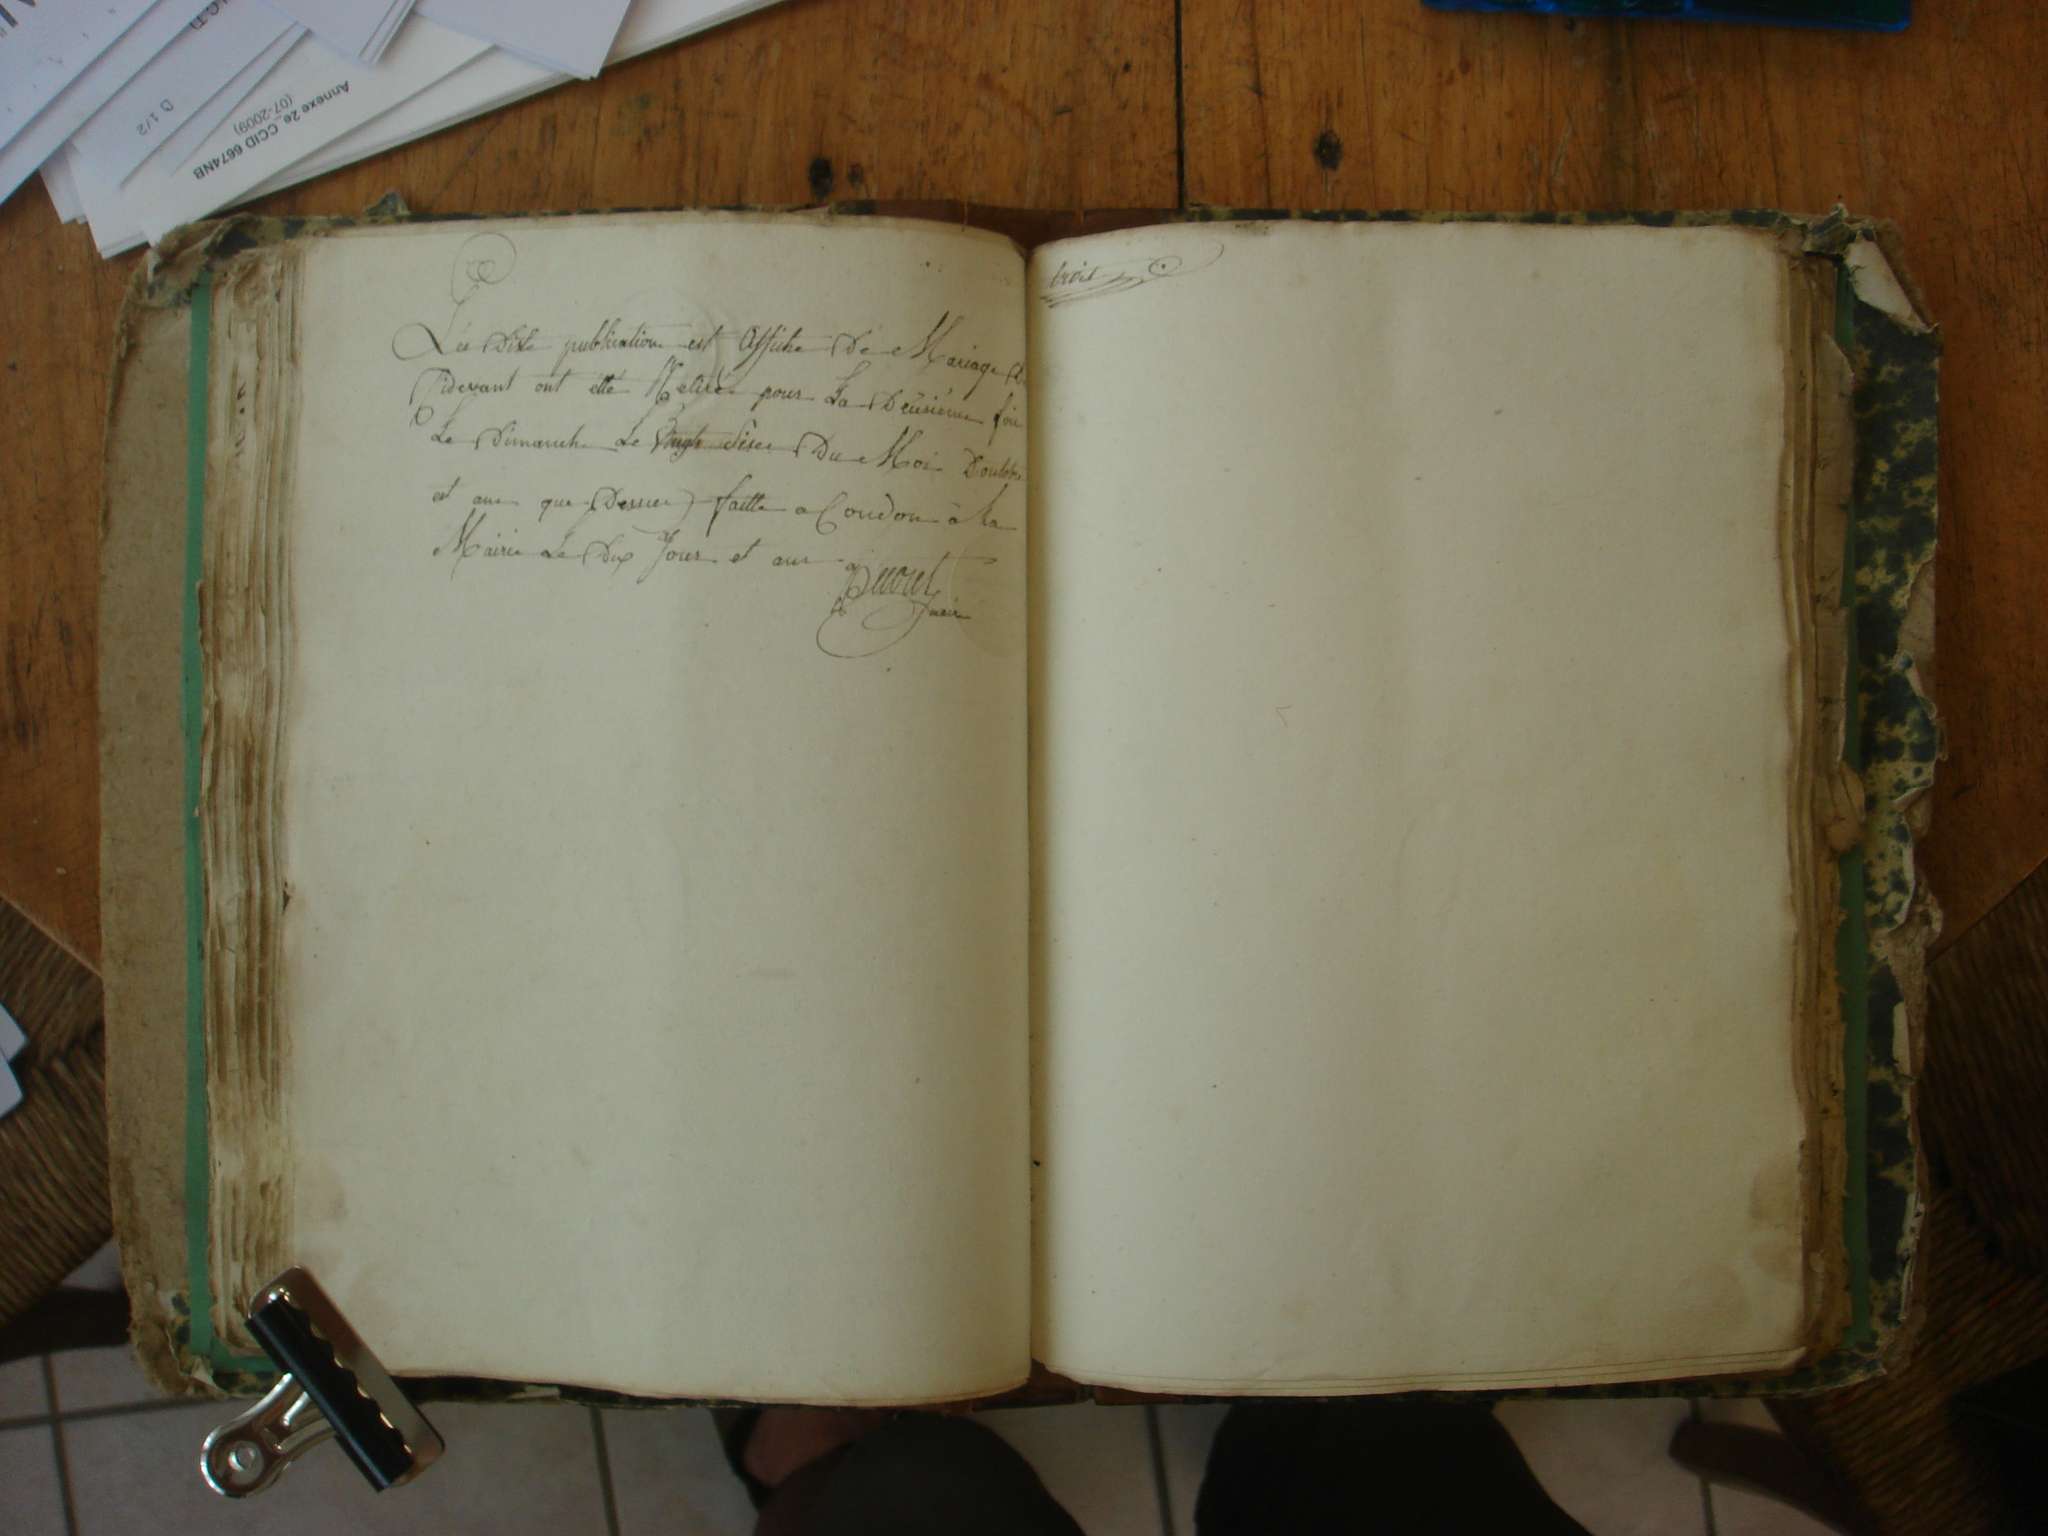 Annexe 2e_CCID 6674NB
(07-2009)
D 1/2
Lès Dite publication est Affiche De Mariage De
Cidevant ont étté Retiré pour La Deusieme foie
Le Dimanche Le Vingt Sise Du Moi Doulobre
et ans que Dessue faitte a Condon à La
Mairie Le Dix Jour et ans
Maire
trois